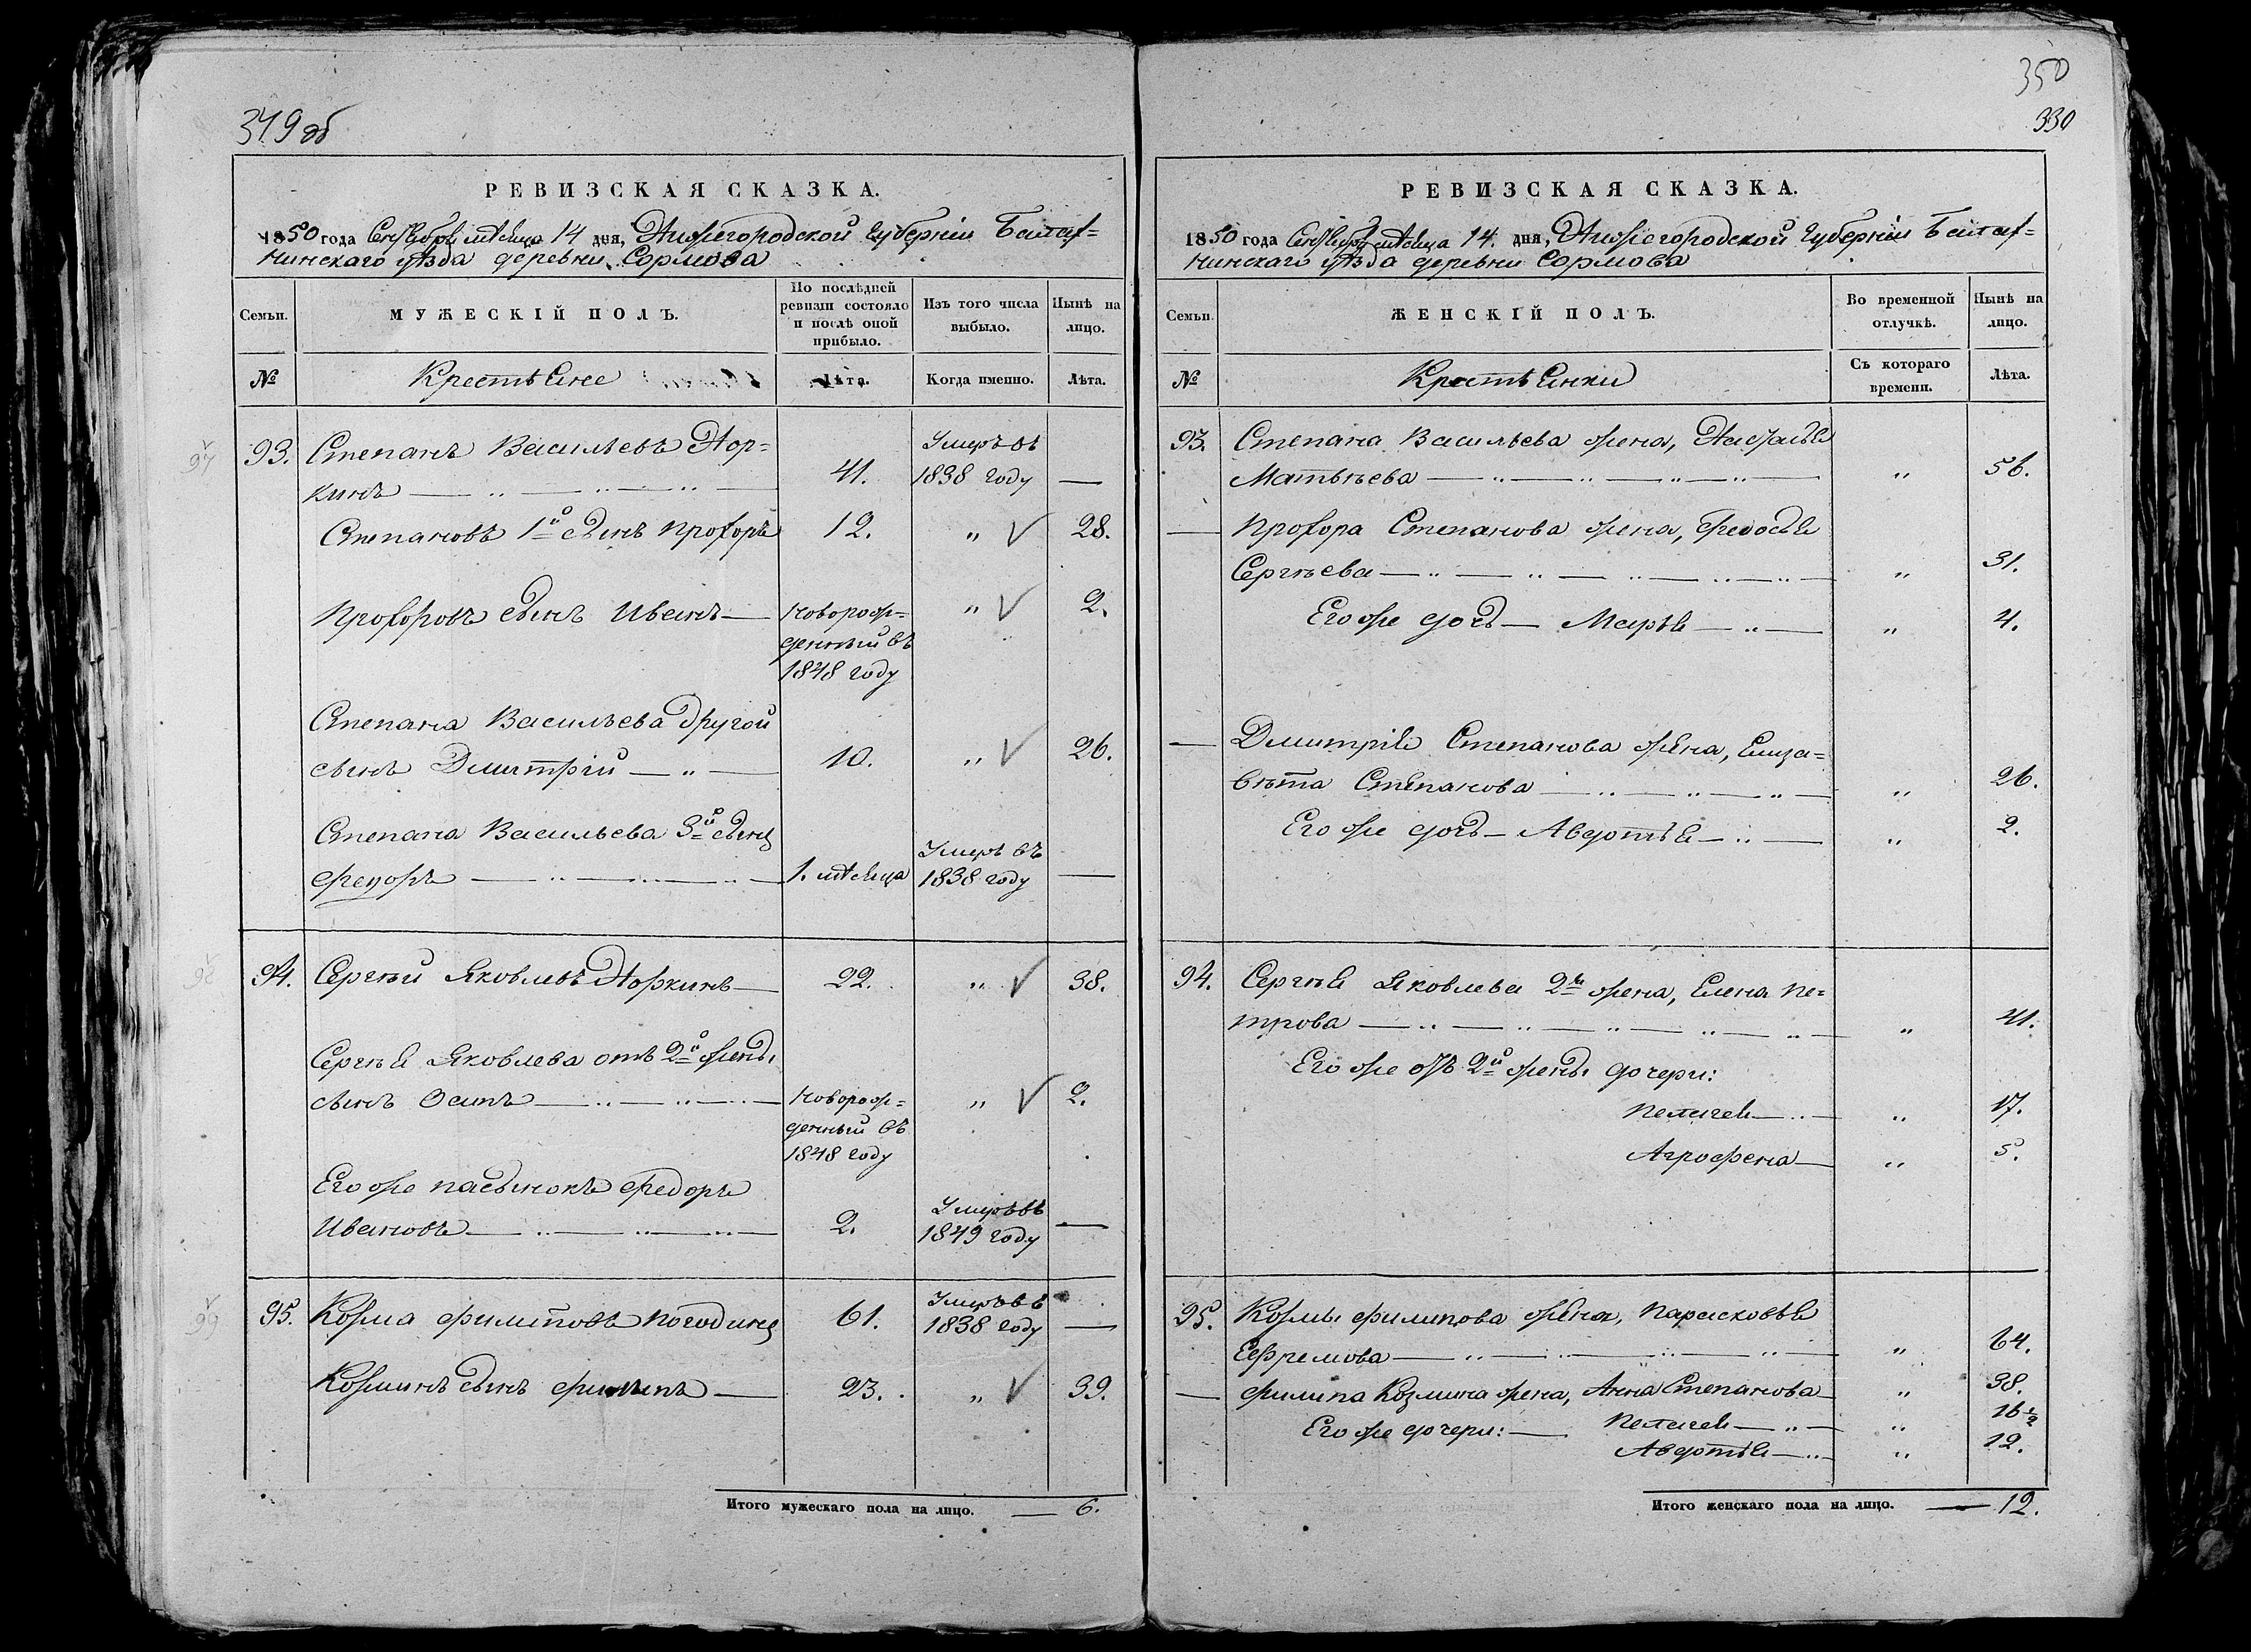 349 об
РЕВИЗСКАЯ СКАЗКА.
1850 года Сентября мѣсяца 14 дня, Нижегородской Губерніи Балах=
нинскаго уѣзда деревни Сормова
Семьи.
МУЖЕСКІЙ ПОЛЪ.
По послѣдней
ревизіи состояло
и послѣ оной
прибыло.
Изъ того числа
выбыло.
Нынѣ на
лицо.
№
Крестьяне
Лѣта.
Когда именно.
Лѣта.
93. Степанъ Васильевъ Нор=
Умеръ въ
кинъ — „ — „ — „ — 41. 1838 году —
Степановъ 1й сынъ Прохоръ 12. „ V 28.
Прохоровъ сынъ Иванъ — Новорож= „ V 2.
денный въ
1848 году
Степана Васильева другой
сынъ Дмитрій — „ — 10. „ V 26.
Степана Васильева 3й сынъ
Умеръ въ
Федоръ — „ — „ — „ — 1. мѣсяца 1838 году —
94. Сергѣй Яковлевъ Норкинъ — 22. „ V 38.
Сергѣя Яковлева отъ 2й жены
сынъ Осипъ — „ — „ — „ — Новорож= „ V 2.
денный въ
1848 году
Его же пасынокъ Федоръ
Умеръ въ
Ивановъ — „ — „ — „ — 2. 1849 году —
95. Козма Филиповъ Погодинъ 61. Умеръ въ
1838 году —
Козминъ сынъ Филипъ — 23. „ V 39.
Итого мужескаго пола на лицо. — 6.
350
330
РЕВИЗСКАЯ СКАЗКА.
1850 года Сентября мѣсяца 14. дня, Нижегородской Губерніи Балах=
нинскаго уѣзда деревни Сормова
Семьи.
ЖЕНСКІЙ ПОЛЪ.
Во временной
отлучкѣ.
Нынѣ на
лицо.
№
Крестьянки
Съ котораго
времени.
Лѣта.
93. Степана Васильева жена, Наталья
Матвѣева — „ — „ — „ — „ — „ 56.
— Прохора Степанова жена, Федосья
Сергѣева — „ — „ — „ — „ — „ — „ 31.
Его же дочь — Марья — „ — „ 4.
— Дмитрія Степанова жена, Елиза=
вѣта Степанова — „ — „ — „ — „ 26.
Его же дочь — Авдотья — „ — „ 2.
94. Сергѣя Яковлева 2я жена, Елена Пе=
трова — „ — „ — „ — „ — „ — „ 41.
Его же отъ 2й жены дочери:
Пелагея — „ — „ 17.
Агрофена — „ 5.
95. Козмы Филипова жена, Парасковья
Ефремова — „ — „ — „ — „ — „ 64.
— Филипа Козмина жена, Анна Степанова — „ 38.
Его же дочери: — Пелагея — „ — „ 16 1/2
Авдотья — „ — „ 12.
Итого женскаго пола на лицо. — 12.